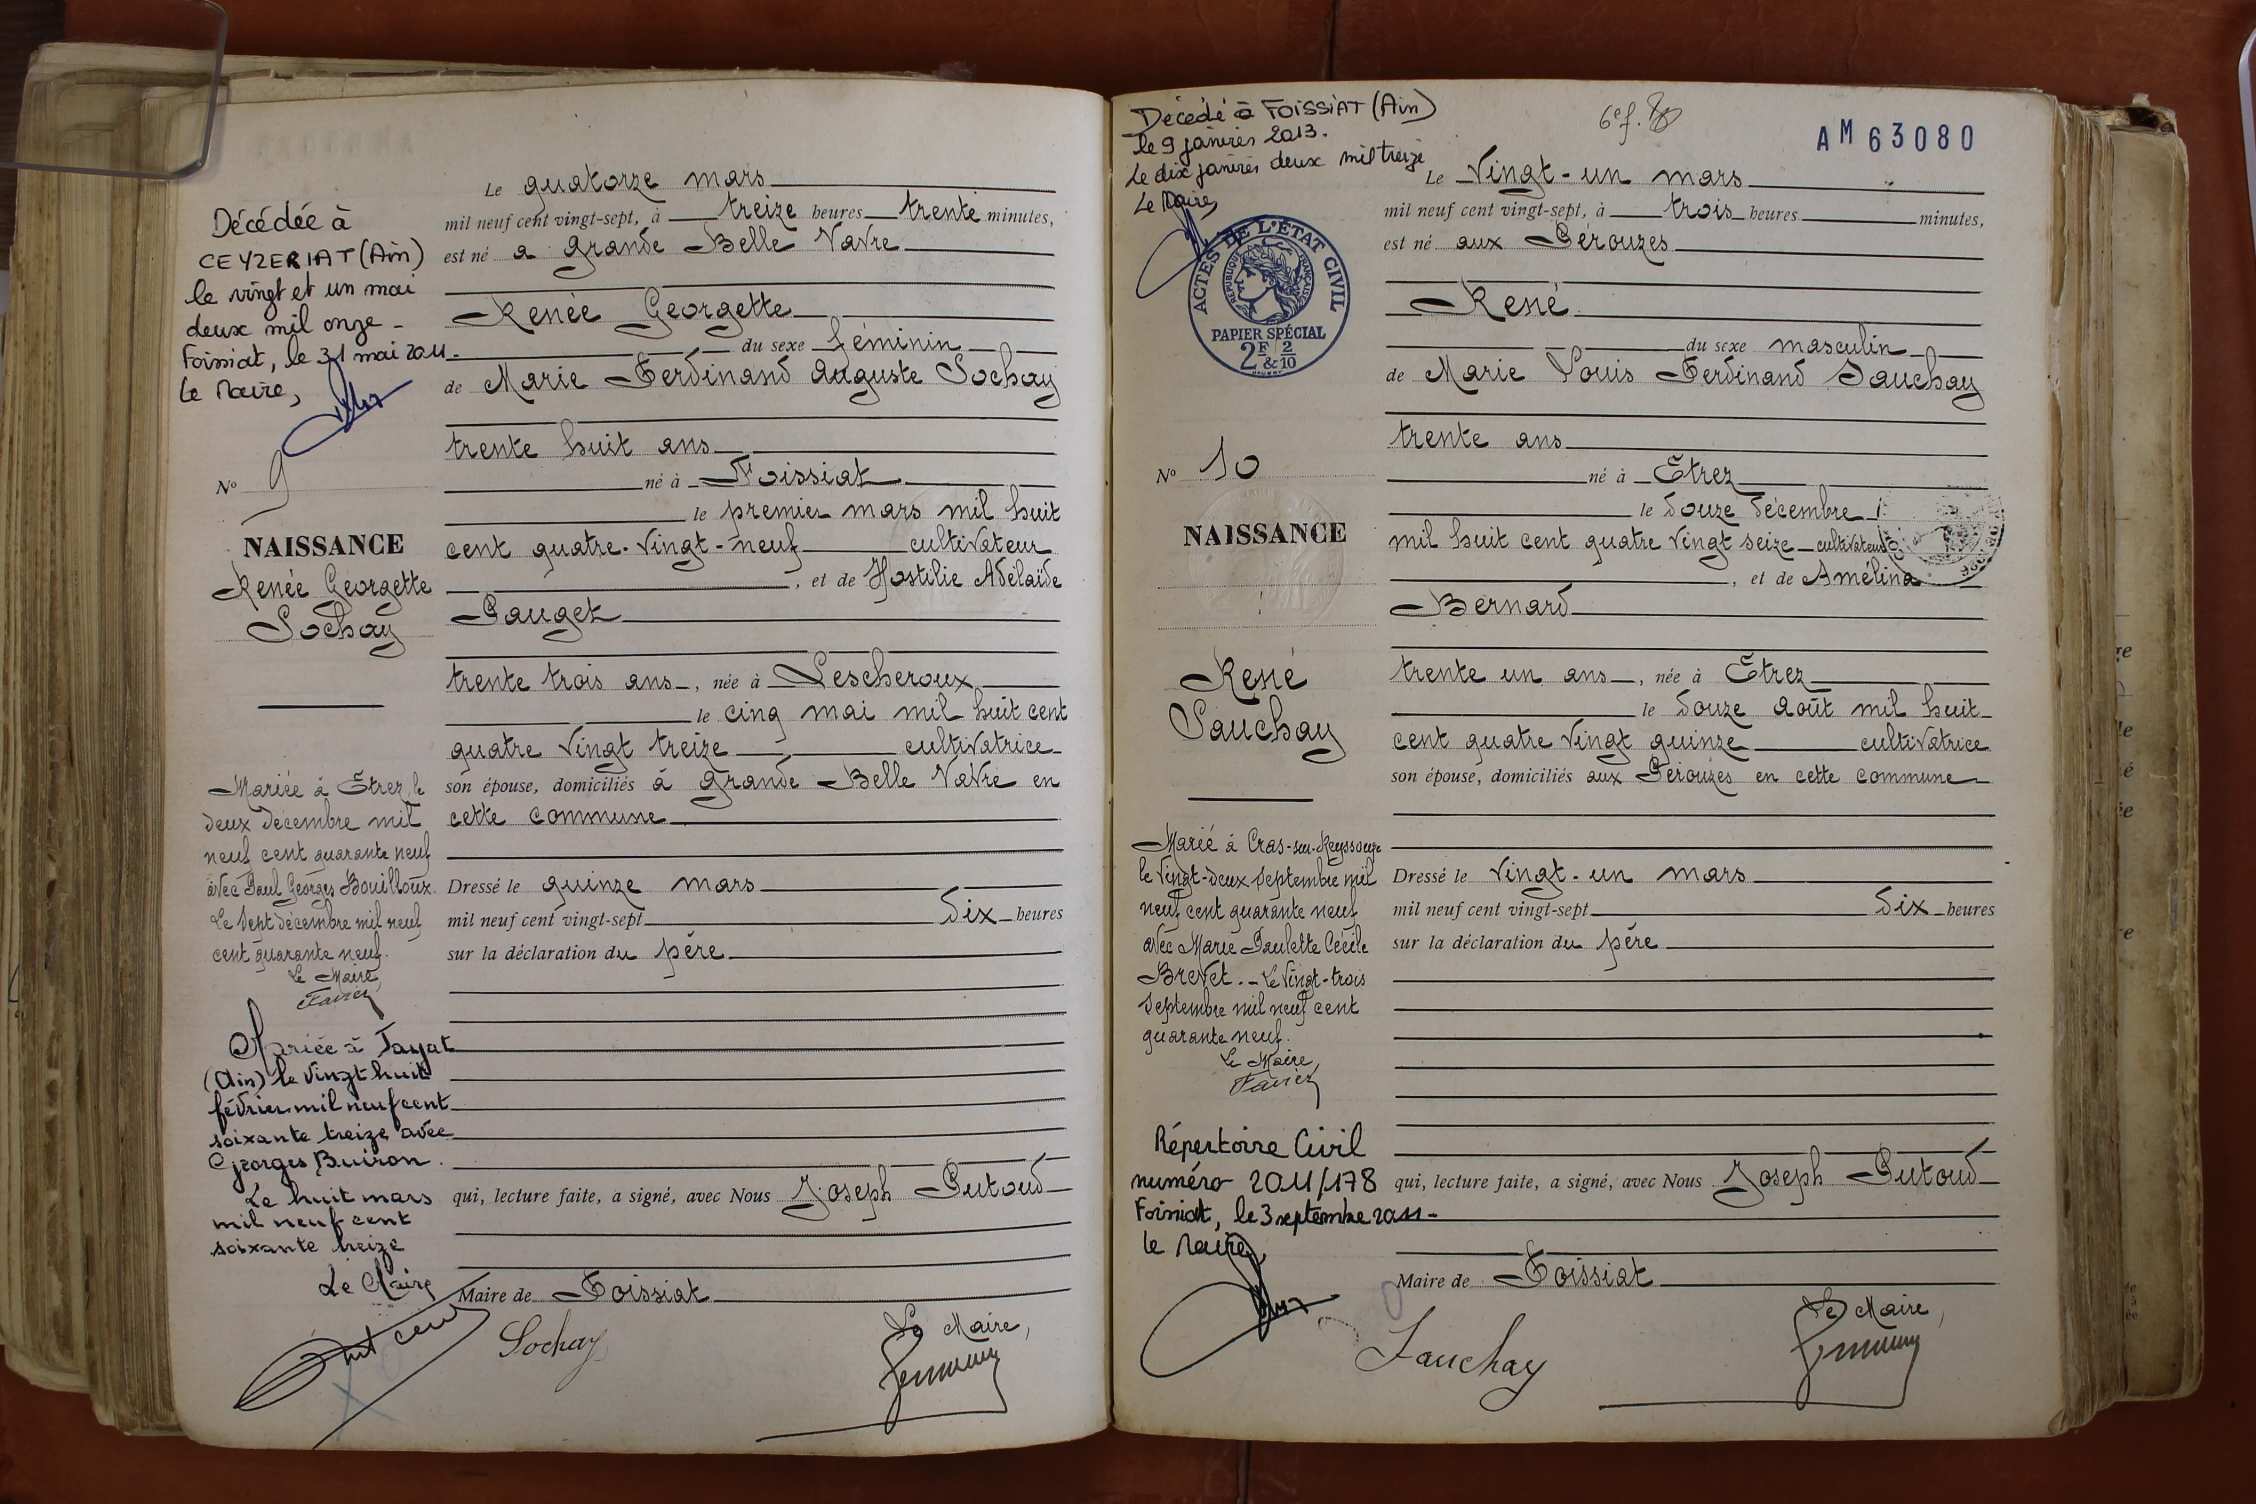 Le quatorze mars
mil neuf cent vingt-sept, à treize heures trente minutes,
est né a grande Belle Vavre
Renée Georgette
du sexe féminin
de Marie Ferdinand Auguste Sochay
trente huit ans
né à Foissiat
le premier mars mil huit
cent quatre-vingt-neuf cultivateur
, et de Hostilie Adélaïde
Pauget
trente trois ans, née à Lescheroux
le cinq mai mil huit cent
quatre vingt treize cultivatrice
son épouse, domiciliés à grande Belle Vavre en
cette commune
Dressé le quinze mars
mil neuf cent vingt-sept dix heures
sur la déclaration du père
qui, lecture faite, a signé, avec Nous Joseph Putoud
Maire de Foissiat
Sochay
Le Maire,
Décédée à
CEYZERIAT (Ain)
le vingt et un mai
deux mil onze -
Foissiat, le 31 mai 2011.
Le Maire,
No 9
NAISSANCE
Renée Georgette
Sochay
Mariée à Etrez, le
deux décembre mil
neuf cent quarante neuf
avec Paul Georges Bouilloux.
Le sept décembre mil neuf
cent quarante neuf.
Le Maire,
Favier
Mariée à Jayat
(Ain) le vingt huit
février mil neuf cent
soixante treize avec
Georges Buiron.
Le huit mars
mil neuf cent
soixante treize
Le Maire
Décédé à FOISSIAT (Ain)
le 9 janvier 2013.
Le dix janvier deux mil treize
Le Maire,
6e f.
AM 63080
ACTES DE L'ÉTAT CIVIL
RÉPUBLIQUE FRANÇAISE
PAPIER SPÉCIAL
2F & 2/10
Le Vingt-un mars
mil neuf cent vingt-sept, à trois heures minutes,
est né aux Pérouzes
René
du sexe masculin
de Marie Louis Ferdinand Sauchay
trente ans
né à Etrez
le douze décembre
mil huit cent quatre vingt seize cultivateur
, et de Amélina
Bernard
trente un ans, née à Etrez
le douze août mil huit
cent quatre vingt quinze cultivatrice
son épouse, domiciliés aux Pérouzes en cette commune
Dressé le vingt-un mars
mil neuf cent vingt-sept dix heures
sur la déclaration du père
qui, lecture faite, a signé, avec Nous Joseph Putoud
Maire de Foissiat
Sauchay
Le Maire,
No 10
NAISSANCE
René
Sauchay
Marié à Cras-sur-Reyssouze
le vingt-deux septembre mil
neuf cent quarante neuf
avec Marie Paulette Cécile
Brevet. - Le vingt-trois
septembre mil neuf cent
quarante neuf.
Le Maire,
Favier
Répertoire Civil
numéro 2011/178
Foissiat, le 3 septembre 2011 -
Le Maire,